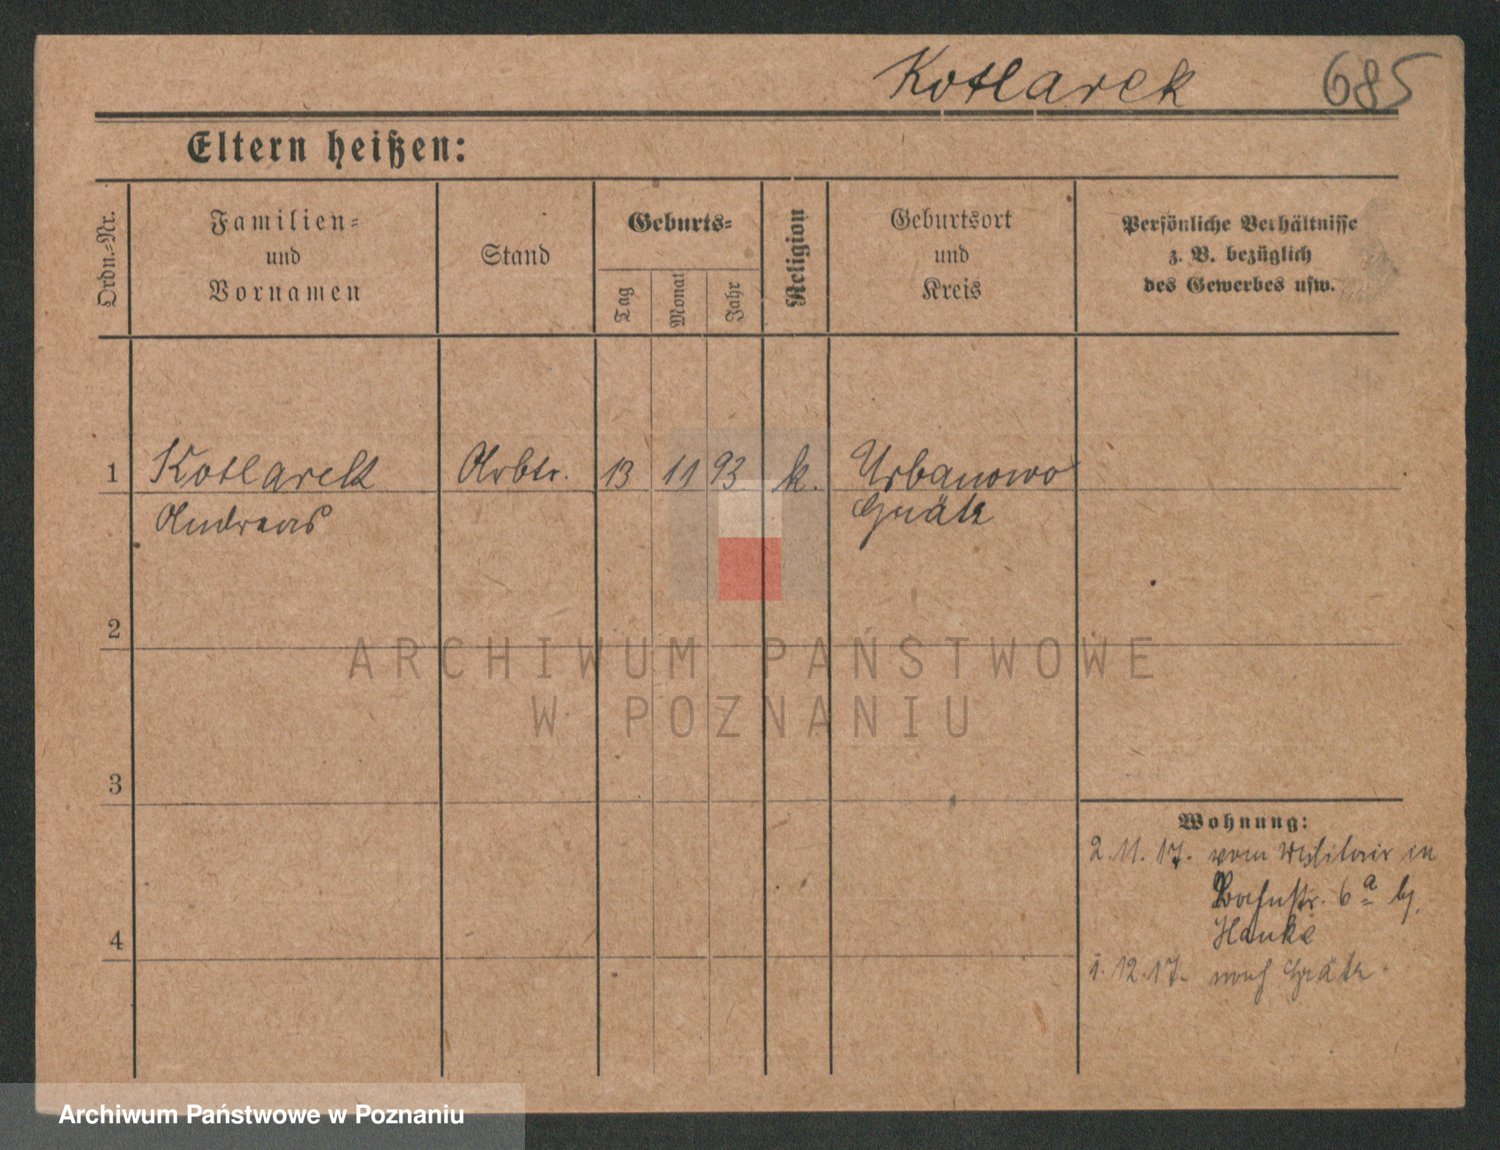 Kotlarek 685
Eltern heißen:
Ordn.-Nr.
Familien-
und
Vornamen
Stand
Geburts-
Tag
Monat
Jahr
Religion
Geburtsort
und
Kreis
Persönliche Verhältnisse
z. B. bezüglich
des Gewerbes usw.
1 Kotlarek Arbtr. 13 11 93 k. Urbanowo
Andreas Grätz
2
ARCHIWUM PAŃSTWOWE
W POZNANIU
3
Wohnung:
2.11.17. vom Militair in
Bahnstr. 6a b/
Hanke
4
1.12.17. nach Grätz
Archiwum Państwowe w Poznaniu